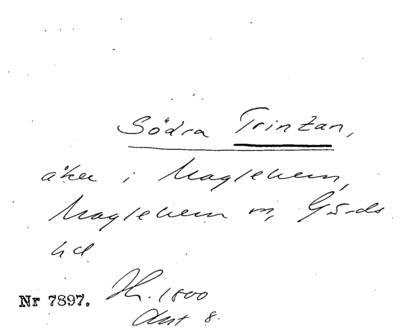 Södra Trintan,
åker i Maglehem,
Maglehem sn, Gärds
hd
Nr 7897. Hr. 1800
Akt 8.